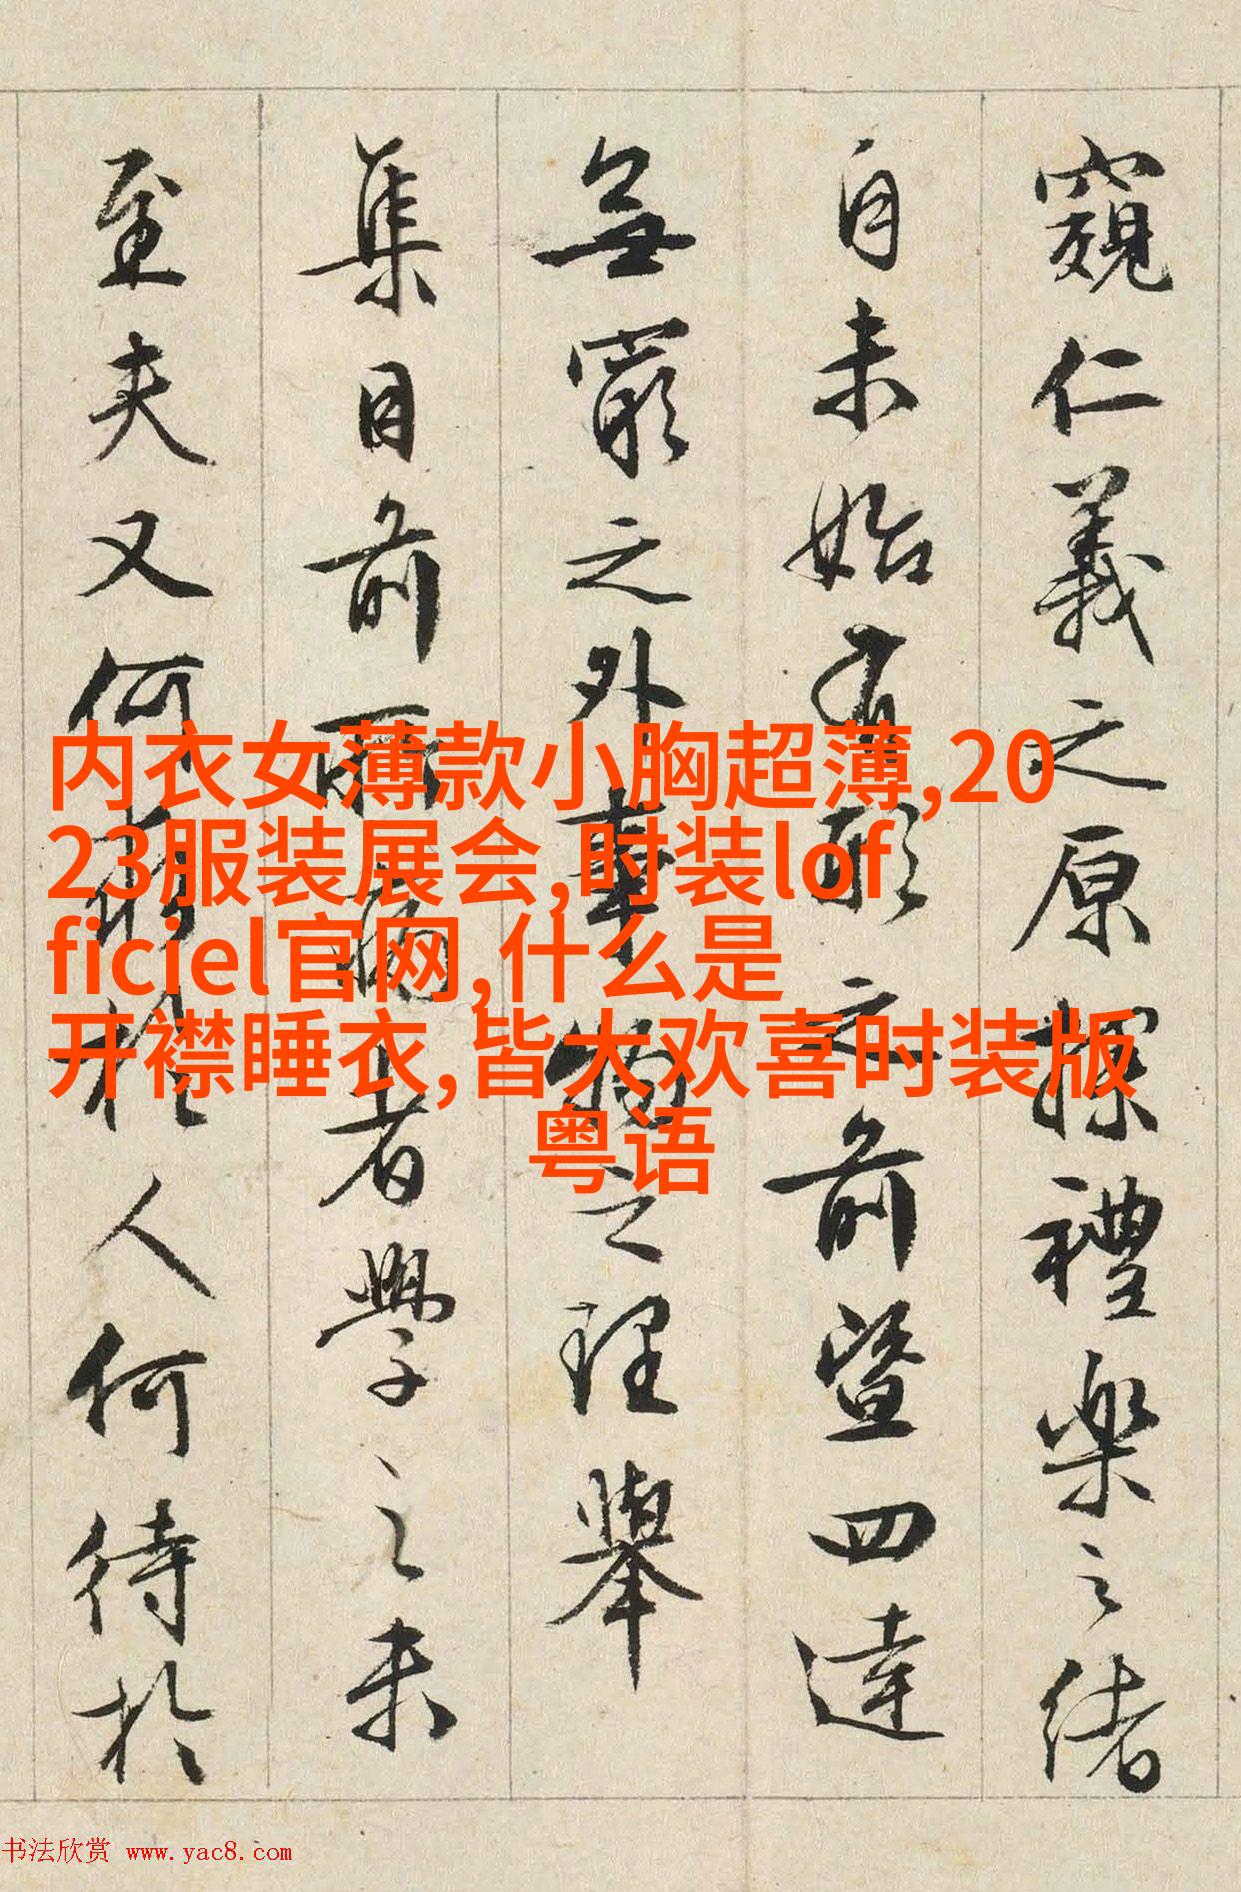 窺仁義之原探禮樂之緒
自未始有形之前暨四達
無窮之外事物之理舉
集目前所病者學之未
至夫又何於人何待於
内衣女薄款小胸超薄,20
23服装展会,时装lof
ficiel官网,什么是
开襟睡衣,皆大欢喜时装版
粤语
书法欣赏 www.yac8.com